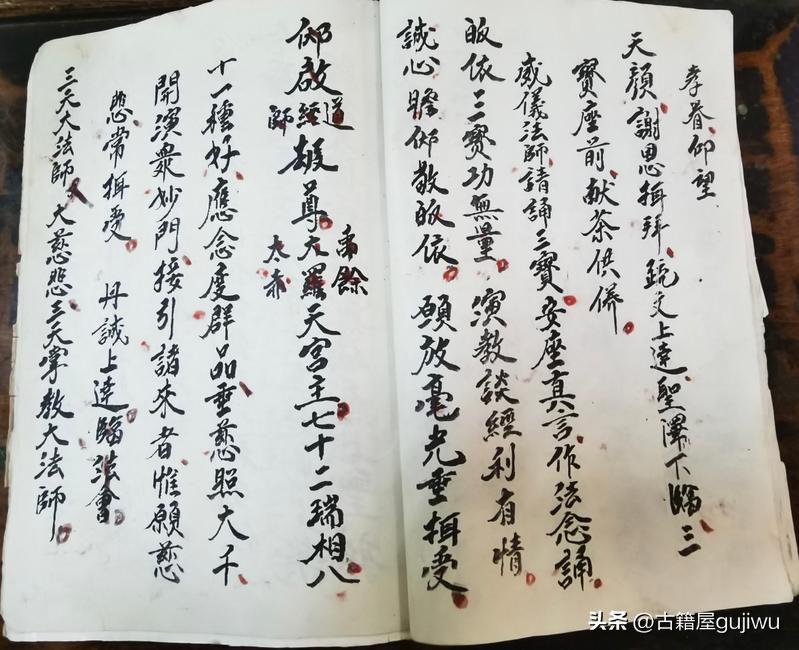 孝眷仰望
天顏謝恩揖拜疏文上達聖澤下臨三
寶座前献茶供俻
威儀法師請誦三寶安座真言作法念誦
皈依三寶功無量 演教談經利有情
誠心瞻仰敬皈依 願放毫光垂揖受
仰啟道經師雄尊大羅天宮主七十二瑞相八
禹餘
太赤
十一種好應念度群品垂慈照大千
開演眾妙門接引諸來者惟願慈
悲常揖受 丹誠上達臨法會
三天大法師 大慈悲三天掌教大法師
头条 @古籍屋gujiwu